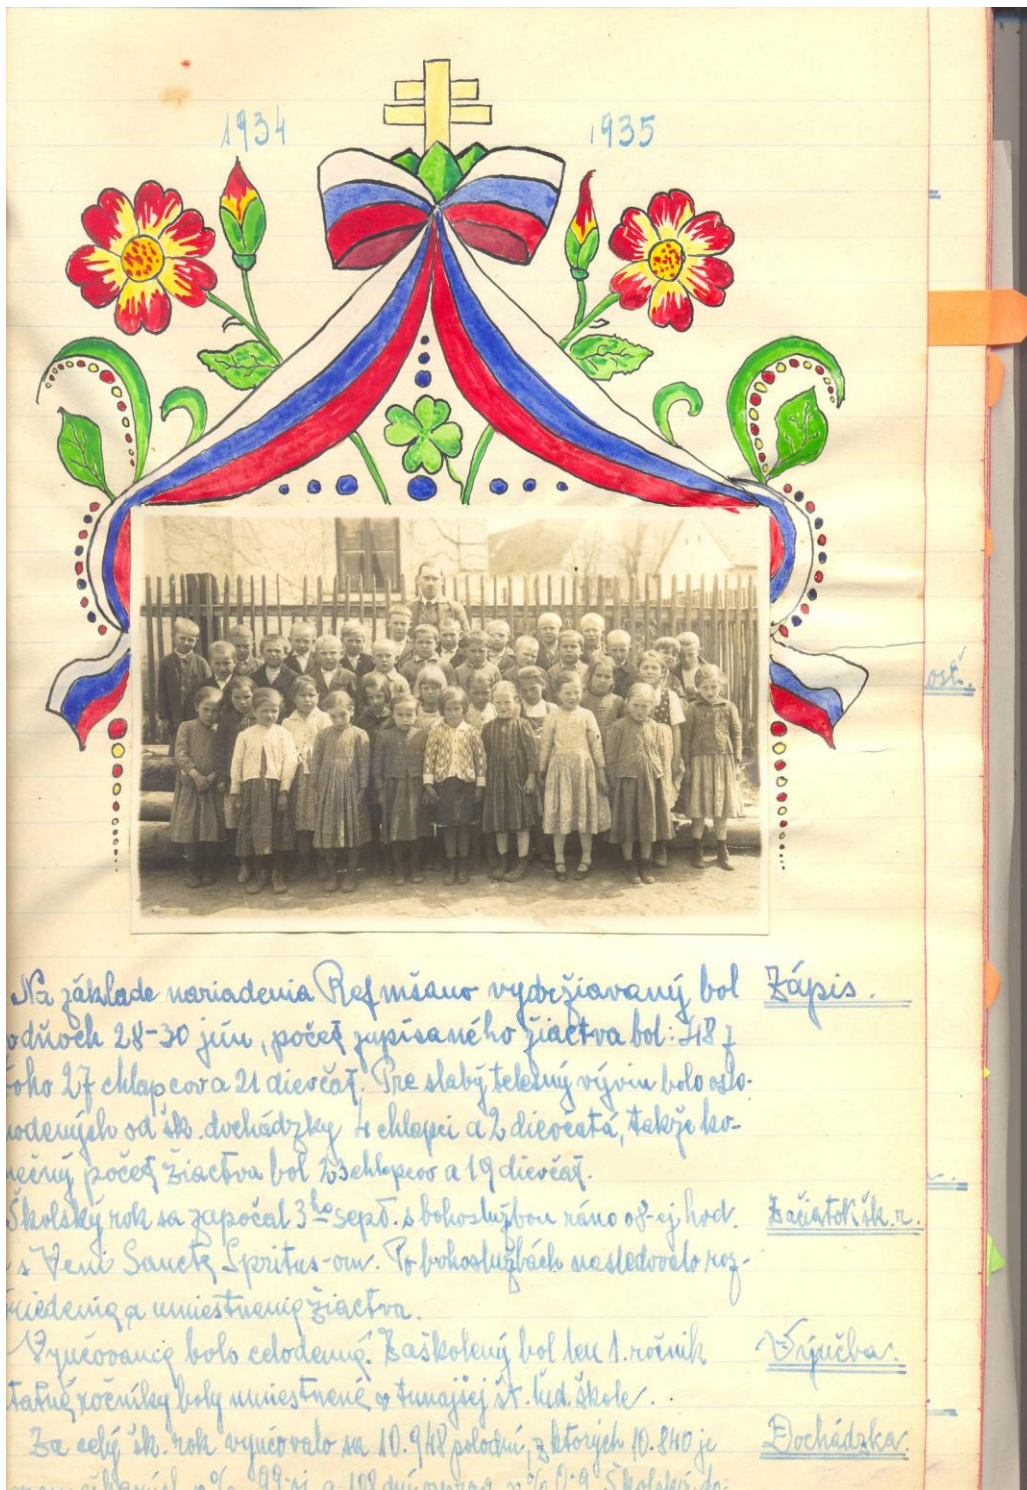 1934 1935
Na základe nariadenia Ref mšano vydržiavaný bol Zápis.
v dňoch 28-30 jún, počet zapísaného žiactva bol: 48 z
toho 27 chlapcov a 21 dievčat. Pre slabý telesný vývin bolo oslo-
bodených od šk. dochádzky 4 chlapci a 2 dievčatá, takže ko-
nečný počet žiactva bol 23 chlapcov a 19 dievčat.
Školský rok sa započal 3ho sept. s bohoslužbou ráno o 8-ej hod. Začiatok šk. r.
s Veni Sancte Spritus-om. Po bohoslužbách nasledovalo roz-
riedenie a umiestnenie žiactva.
Vyučovanie bolo celodenné. Zaškolený bol len 1. ročník Výučba.
ostatné ročníky boly umiestnené v tunajšej št. ľud. škole.
Za celý šk. rok vyučovalo sa 10.948 poldní, z ktorých 10.840 je Dochádzka.
v % 99·si a 108 dní v % 0·9 Školská do-
ost.